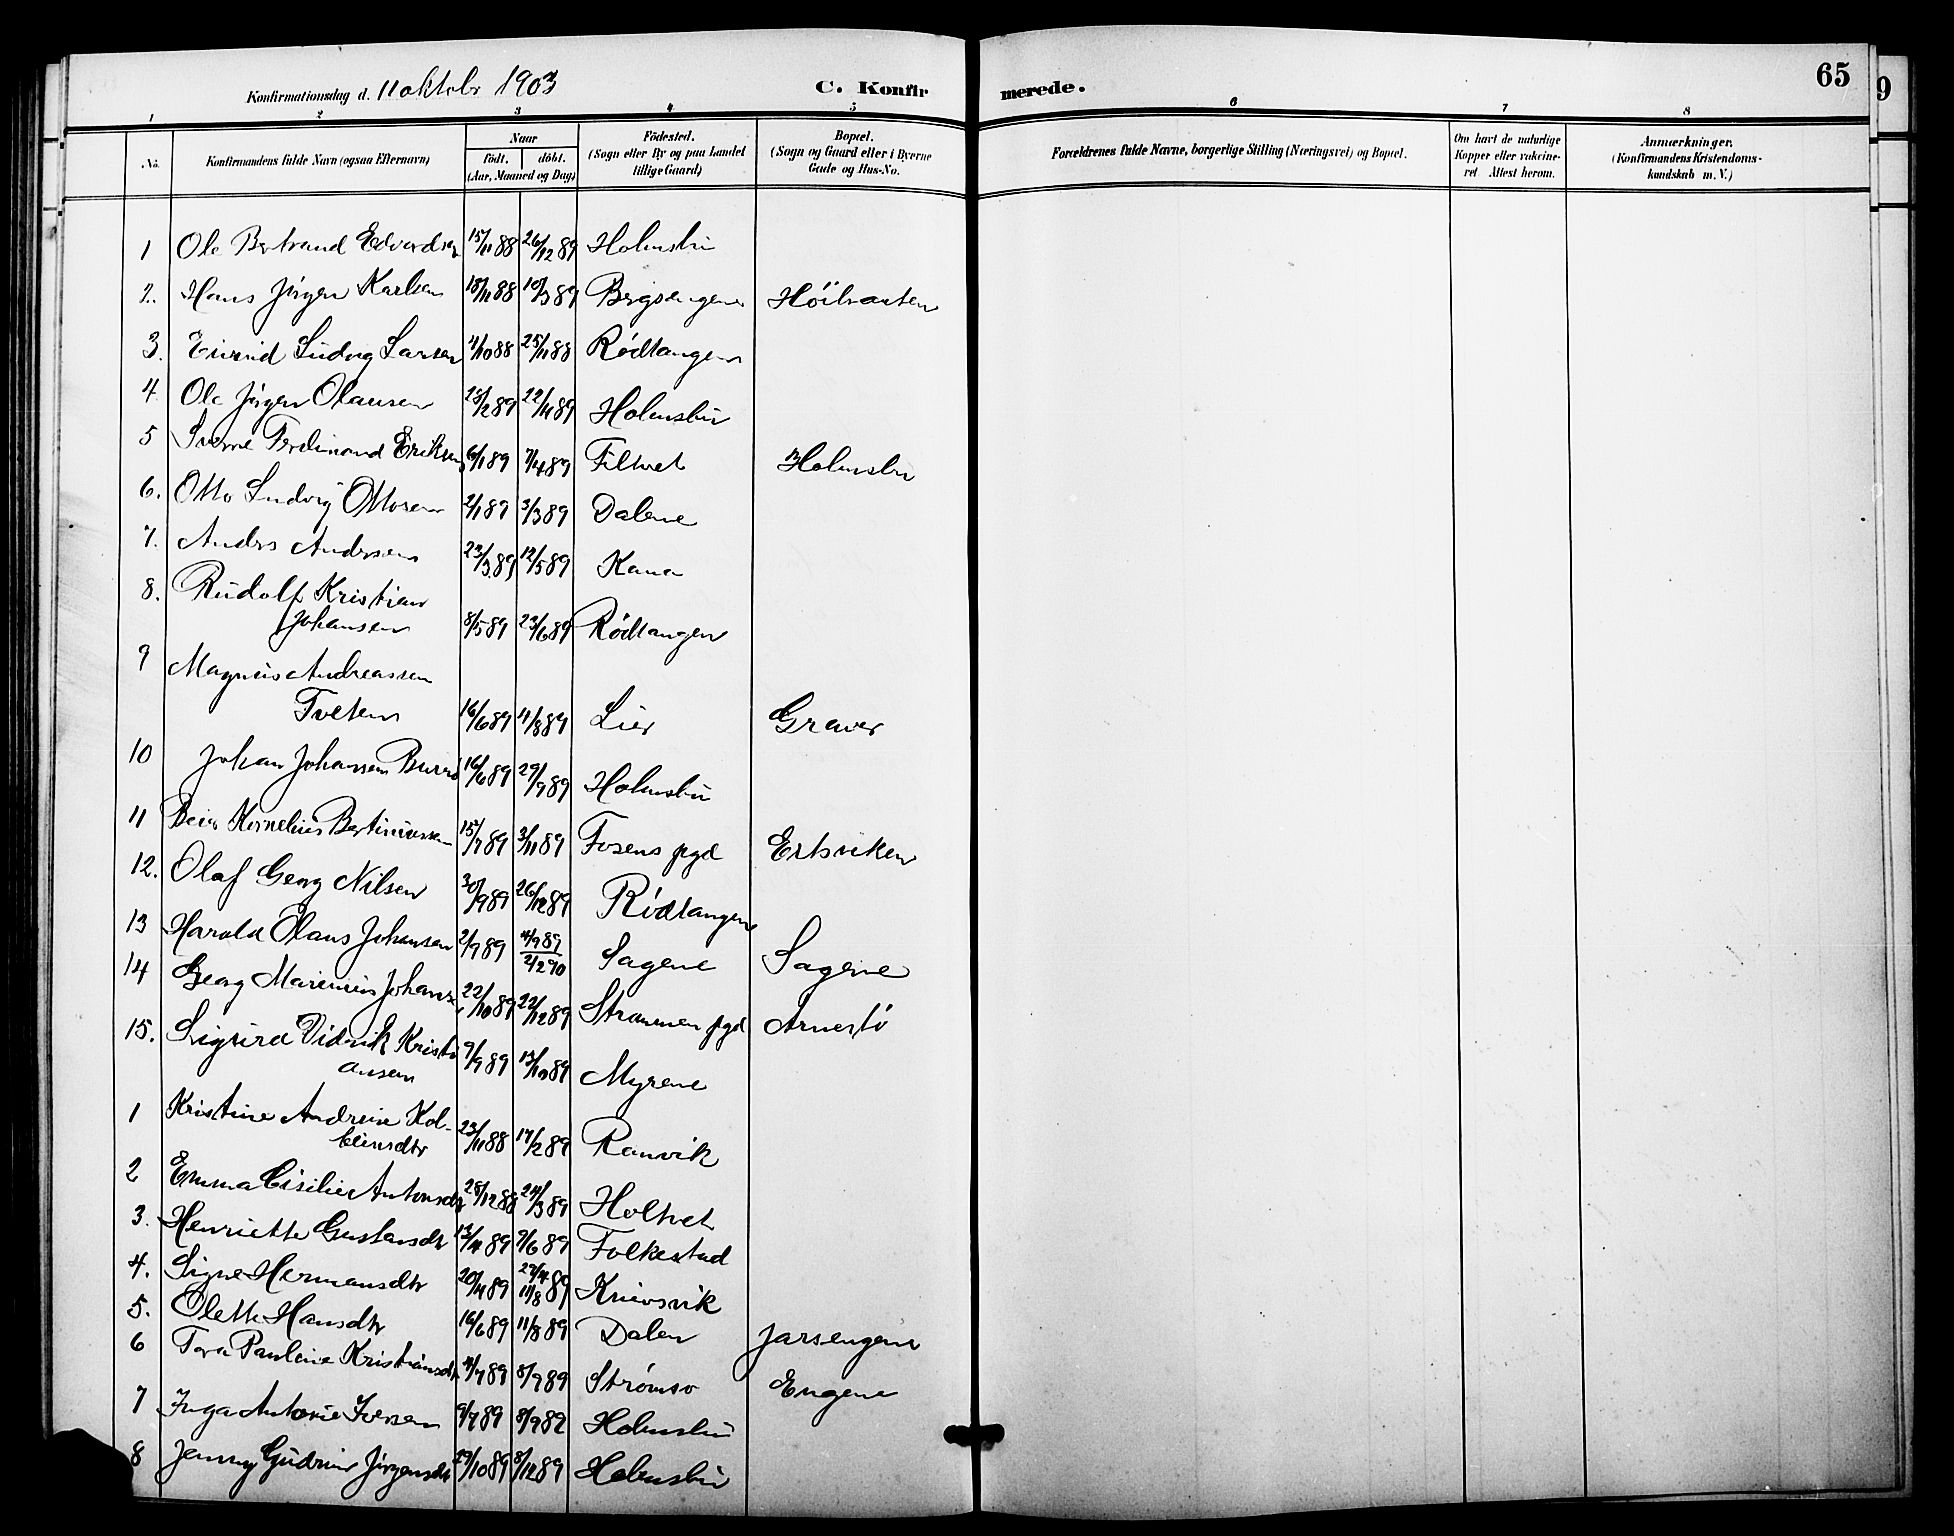 Konfirmationsdag d. 11 oktobr 1903 C. Konfirmerede. 65
1 2 3 4 5 6 7 8
No. Konfirmandens fulde Navn (ogsaa Efternavn) Naar født. døbt. (Aar, Maaned og Dag) Födested. (Sogn eller By og paa Landet tillige Gaard) Bopæl. (Sogn og Gaard eller i Byerne Gade og Hus-No. Forældrenes fulde Navne, borgerlige Stilling (Næringsvei) og Bopæl. Om havt de naturlige Kopper eller vakcineret Attest herom. Anmærkninger. (Konfirmandens Kristendomskundskab m. V.)
1 Ole Bertrand Edvardsen 15/11 88 26/12 89 Holmsbu
2. Hans Jørgen Karlsen 18/11 88 10/3 89 Bergsengene Höibraaten
3. Eivind Ludvig Larsen 4/10 88 25/11 88 Rødtangen
4. Ole Jörgen Olausen 23/2 89 22/4 89 Holmsbu
5 Sverre Ferdinand Eriksen 6/1 89 7/4 89 Filtvet Holmsbu
6. Otto Ludvig Ottosen 2/1 89 3/3 89 Dalene
7. Anders Andersen 23/3 89 12/5 89 Kana
8. Rudolf Kristian
Johansen 8/5 89 23/6 89 Rødtangen
9 Magnus Andreassen
Tveten 16/6 89 4/8 89 Lier Graver
10 Johan Johansen 16/6 89 29/9 89 Holmsbu
11 Kornelius Bertiniussen 15/7 89 3/11 89 Fosens pgd Ertsviken
12. Olaf Georg Nilsen 30/9 89 26/12 89 Rødtangen
13 Harald Olaus Johansen 2/9 89 4/9 89 2/2 90 Sagene Sagene
14 Georg Marinius Johansen 22/10 89 22/12 89 Strømmen pgd Arnestø
15. Sigurd Didrik Kristiansen 9/9 89 13/10 89 Myrene
1 Kristine Andrine Kolbeinsdtr 23/11 88 17/2 89 Ranvik
2 Emma Cisilie Antonsdtr 28/12 88 24/3 89 Holtvet
3. Henriette Gustavsdtr 13/4 89 9/6 89 Folkestad
4. Signe Hermansdtr 20/4 89 27/4 11/8 89 Knivsvik
5. Olette Hansdtr 16/6 89 11/8 89 Dalen Jarsengene
6 Tora Pauline Kristiansdtr 4/7 89 8/9 89 Strømsø Engene
7 Inga Antonie Iversen 9/7 89 8/9 89 Holmsbu
8 Jenny Gudrun Jörgensdtr 29/10 89 8/12 89 Holmsbu